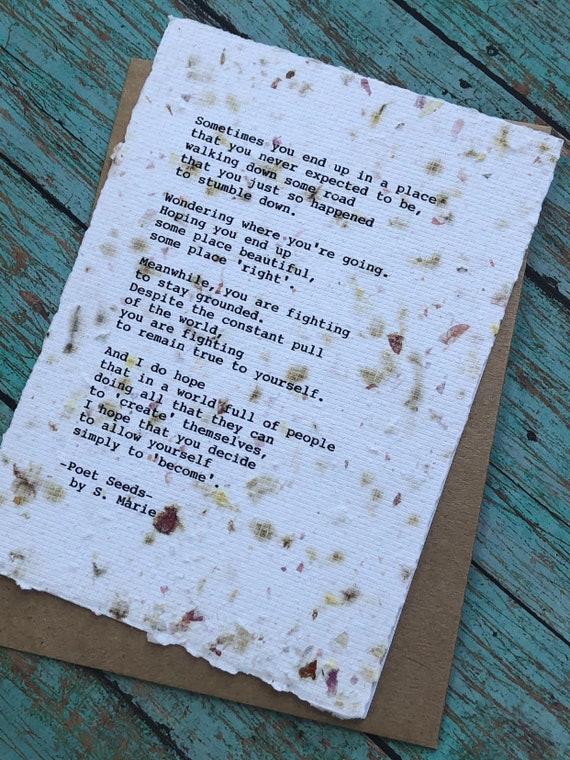 Sometimes you end up in a place
that you never expected to be,
walking down some road
that you just so happened
to stumble down.
Wondering where you're going.
Hoping you end up
some place beautiful,
some place 'right'.
Meanwhile, you are fighting
to stay grounded.
Despite the constant pull
of the world,
you are fighting
to remain true to yourself.
And I do hope
that in a world full of people
doing all that they can
to 'create' themselves,
I hope that you decide
to allow yourself
simply to 'become'.
-Poet Seeds-
by S. Marie